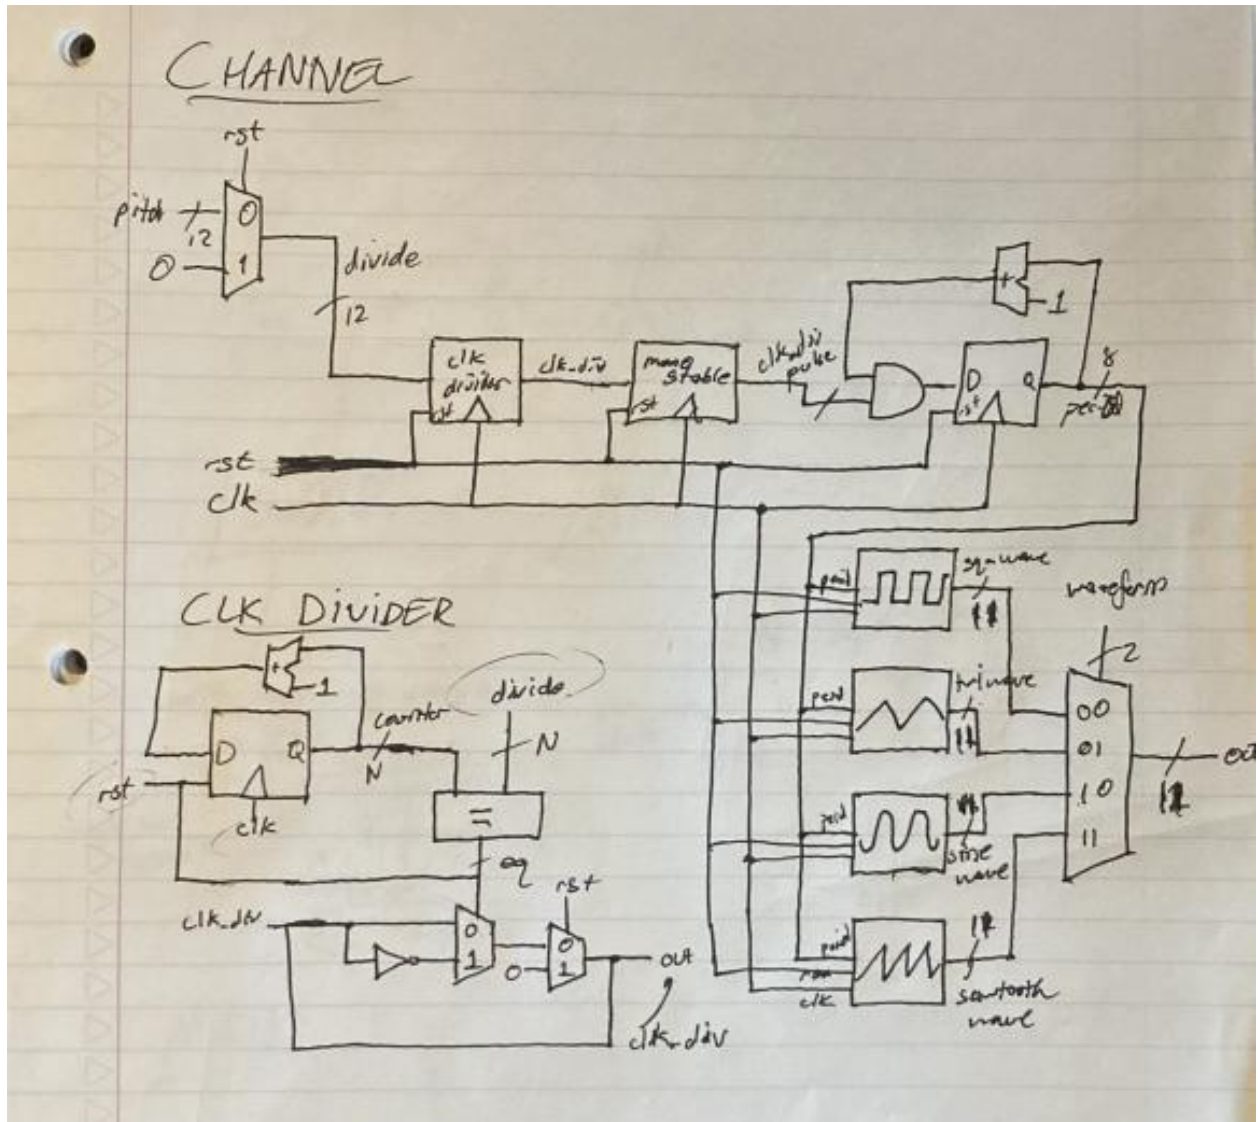 CHANNEL
rst
pitch
12
0
0
1
divide
12
clk
divider
rst
clk_div
mono
stable
rst
clk_div
pulse
+
1
D
Q
rst
8
rst
clk
period
sqr wave
waveform
2
period
tri wave
period
sine
wave
period
clk
sawtooth
wave
00
01
10
11
out
CLK DIVIDER
+
1
D
Q
rst
clk
counter
N
divide
N
=
eq
rst
clk_div
0
1
0
0
1
out
clk_div